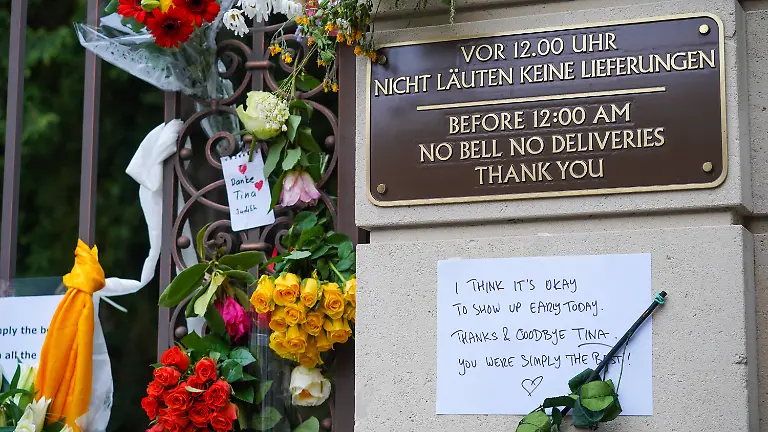 VOR 12.00 UHR
NICHT LÄUTEN KEINE LIEFERUNGEN
BEFORE 12:00 AM
NO BELL NO DELIVERIES
THANK YOU
Danke
Tina
Judith
I THINK IT'S OKAY
TO SHOW UP EARLY TODAY.
THANKS & GOODBYE TINA.
YOU WERE SIMPLY THE BEST!
mply the be
n all the